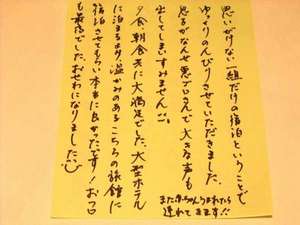 思いがけない一組だけの宿泊ということで
ゆっくりのんびりさせていただきました。
怒るがなんせ悪ブロさんで大きな声も
出してしまいすみません。
夕食、朝食共に大満足でした。大型ホテル
に泊まるより、温かみのあるこちらの旅館に
宿泊させてもらい本当に良かったです！おフロ
も最高でした。おせわになりました
また赤ちゃんうまれたら
連れてきます!!